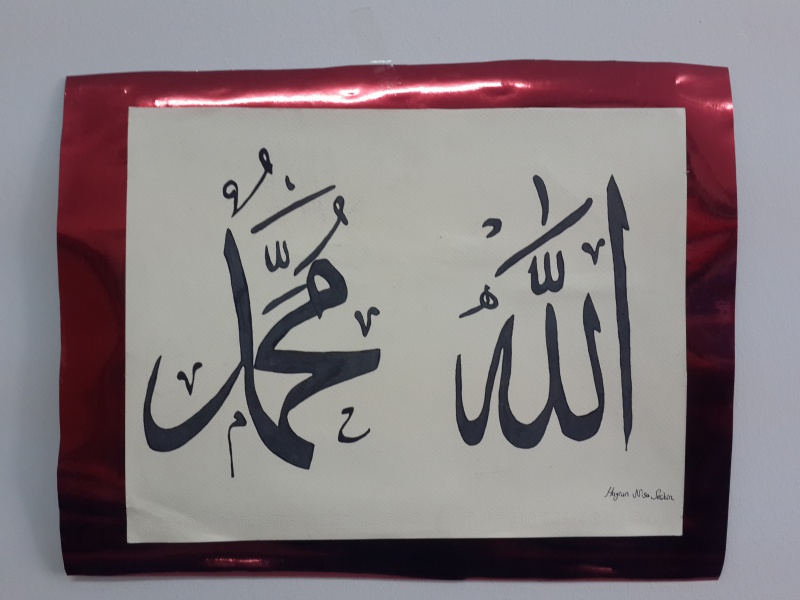 الله محمد
Hayrun Nisa Seçkin